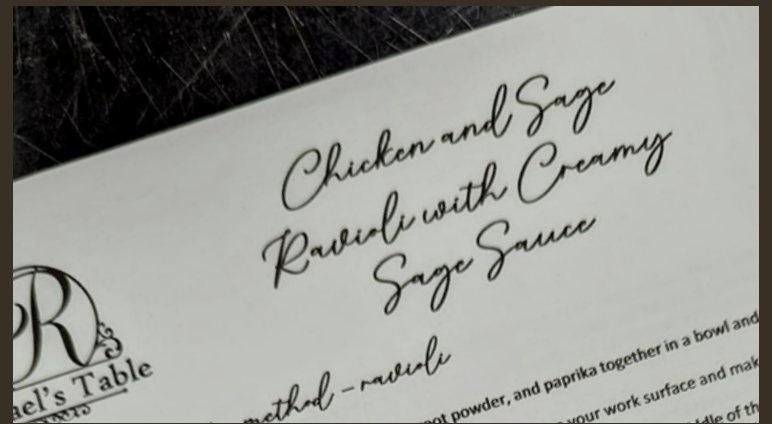 Chicken and Sage
Ravioli with Creamy
Sage Sauce
R
ael's Table
method – ravioli
powder, and paprika together in a bowl and
your work surface and
of